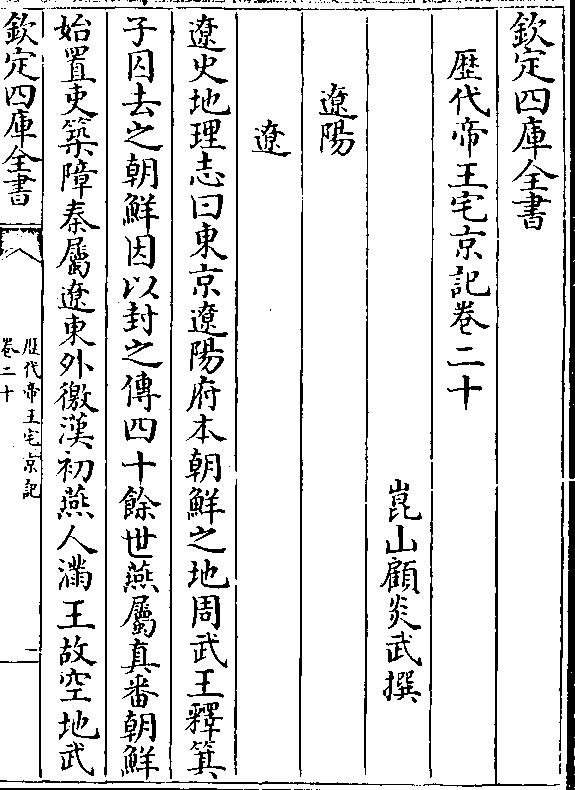 欽定四庫全書
歷代帝王宅京記卷二十
崑山顧炎武撰
遼陽
遼
遼史地理志曰東京遼陽府本朝鮮之地周武王釋箕
子囚去之朝鮮因以封之傳四十餘世燕屬真番朝鮮
始置吏築障秦屬遼東外徼漢初燕人滿王故空地武
欽定四庫全書
歷代帝王宅京記
卷二十
一